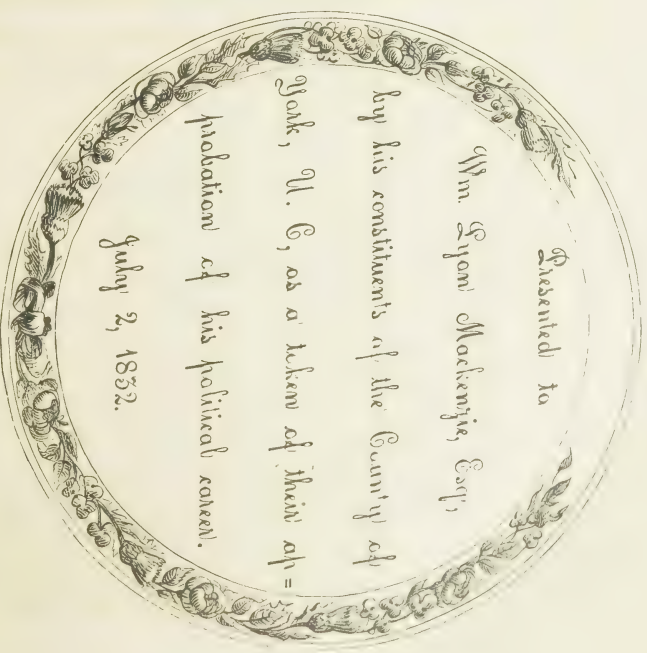 Presented to
Wm. Lyon Mackenzie, Esq',
by his constituents of the County of
York, U. C, as a token of their ap=
probation of his political career.
July 2, 1832.